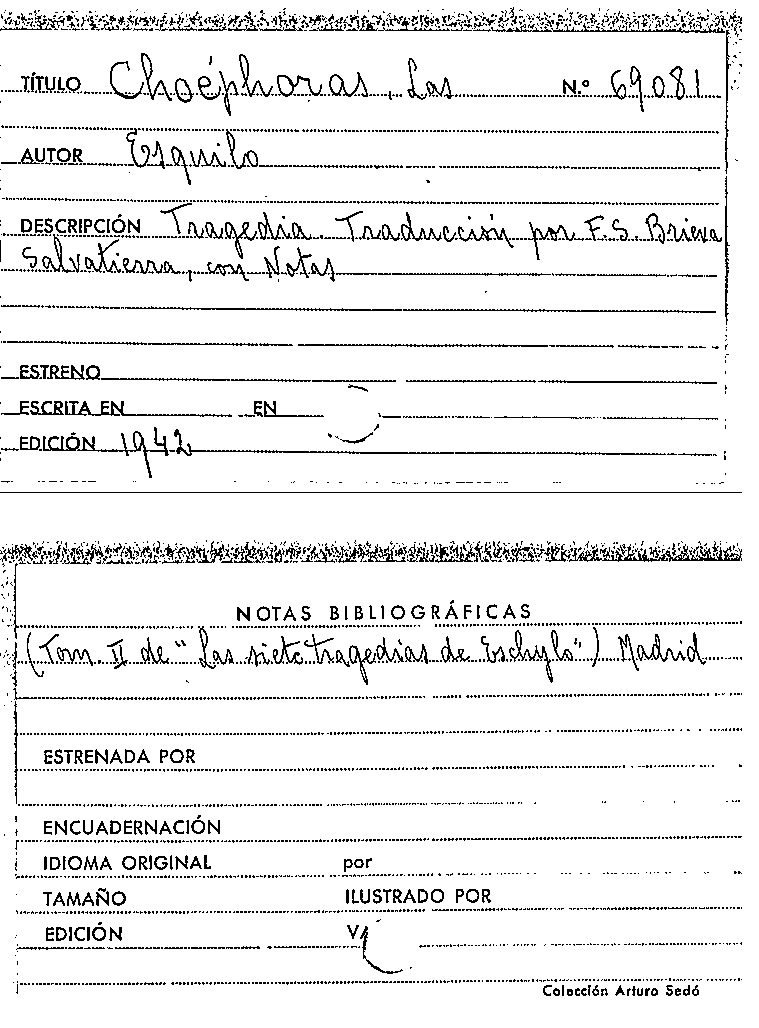 TÍTULO Choéphoras, Las N.º 69081
AUTOR Esquilo
DESCRIPCIÓN Tragedia. Traducción por F.S. Brieva
Salvatierra, con Notas
ESTRENO
ESCRITA EN EN
EDICIÓN 1942
NOTAS BIBLIOGRÁFICAS
(Tom. II de "Las siete tragedias de Eschylo") Madrid
ESTRENADA POR
ENCUADERNACIÓN
IDIOMA ORIGINAL por
TAMAÑO ILUSTRADO POR
EDICIÓN
Colección Arturo Sedó